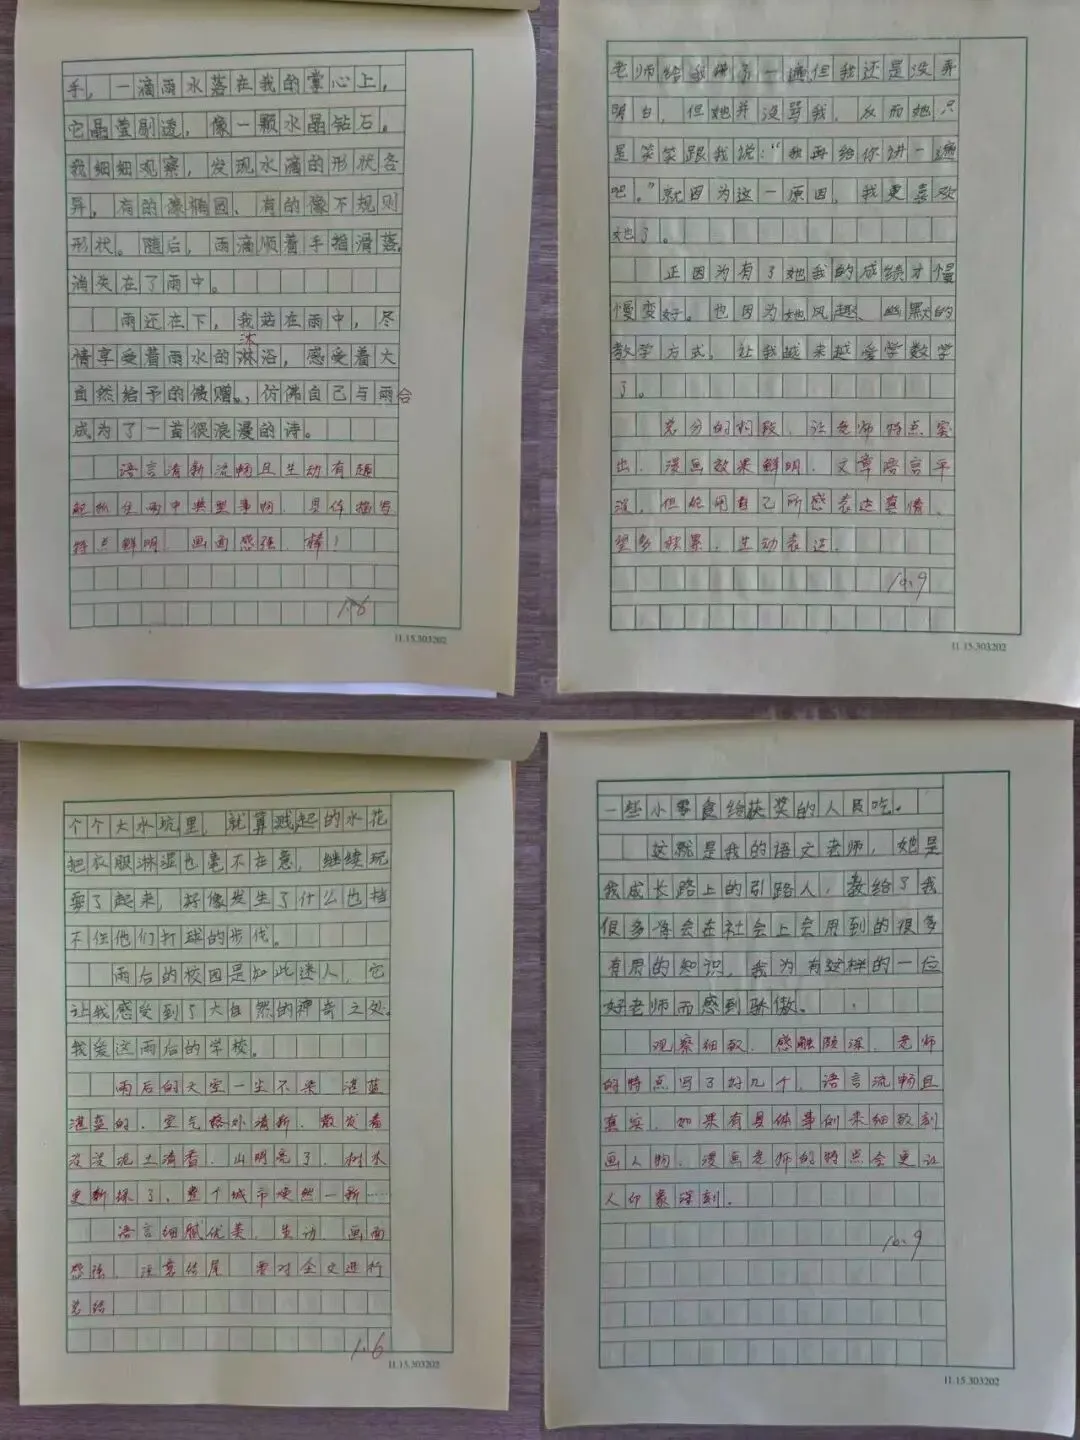 手，一滴雨水落在我的掌心上，
它晶莹剔透，像一颗水晶钻石。
我细细观察，发现水滴的形状各
异，有的像椭圆、有的像不规则
形状。随后，雨滴顺着手指滑落，
消失在了雨中。
雨还在下，我站在雨中，尽
沐
情享受着雨水的淋浴，感受着大
自然给予的馈赠。，仿佛自己与雨合
成为了一首很浪漫的诗。
语言清新流畅且生动有趣
能抓住雨中典型事物，具体描写
特点鲜明，画面感强，棒！
1.6
11.15.303202
老师给我讲了一遍但我还是没弄
明白，但她并没骂我，反而她只
是笑笑跟我说：“我再给你讲一遍
吧。”就因为这一原因，我更喜欢
她了。
正因为有了她我的成绩才慢
慢变好。也因为她风趣、幽默的
教学方式，让我越来越爱学数学
了。
总分的构段，让老师特点突
出，漫画效果鲜明，文章语言平
淡，但能用自己所感表达真情、
望多积累，生动表达。
10.9
11.15.303202
个个大水坑里，就算溅起的水花
把衣服淋湿也毫不在意，继续玩
耍了起来，好像发生了什么也挡
不住他们打球的步伐。
雨后的校园是如此迷人，它
让我感受到了大自然的神奇之处。
我爱这雨后的学校。
雨后的天空一尘不染，湛蓝
湛蓝的，空气格外清新，散发着
淡淡泥土清香，山明亮了，树木
更新绿了，整个城市焕然一新……
语言细腻优美，生动，画面
感强，注意结尾，要对全文进行
总结
1.6
11.15.303202
一些小零食给获奖的人员吃。
这就是我的语文老师，她是
我成长路上的引路人，教给了我
很多将会在社会上会用到的很多
有用的知识，我为有这样的一位
好老师而感到骄傲。
观察细致，感触颇深，老师
的特点写了好几个，语言流畅且
真实，如果有具体事例来细致刻
画人物，漫画老师的特点会更让
人印象深刻。
10.9
11.15.303202